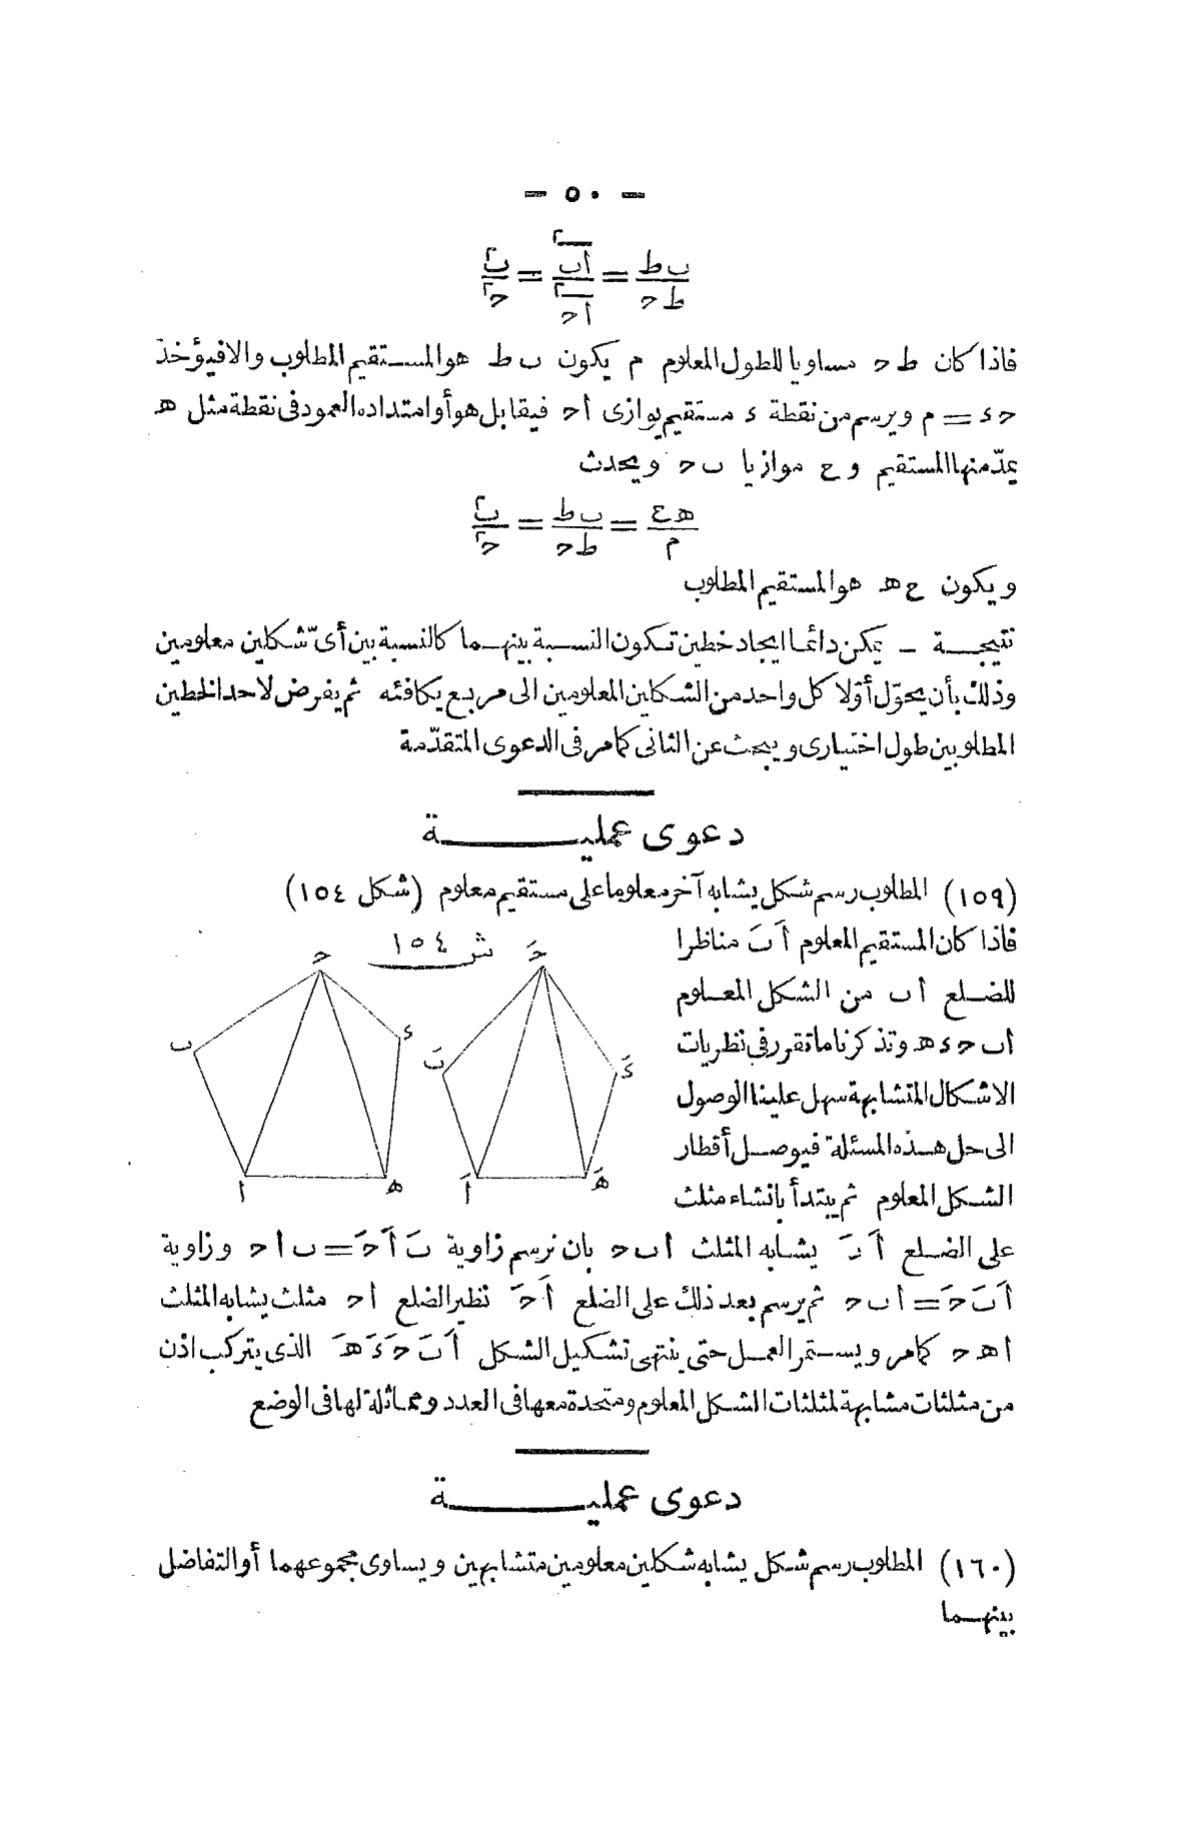 — ٥٠ —
ب ط / ط ح = أب٢ / أح٢ = ب٢ / ح٢
فاذا كان ط ح مساويا للطول المعلوم م يكون ب ط هو المستقيم المطلوب والا فيؤخذ
ح ء = م ويرسم من نقطة ء مستقيم يوازى أح فيقابل هو أو امتداده العمود فى نقطة مثل ه
يمدّ منها المستقيم و ع موازيا ب ح ويحدث
ه ع / م = ب ط / ط ح = ب٢ / ح٢
ويكون ع ه هو المستقيم المطلوب
نتيجة — يمكن دائما ايجاد خطين تكون النسبة بينهما كالنسبة بين أىّ شكلين معلومين
وذلك بأن يحوّل أوّلا كل واحد من الشكلين المعلومين الى مربع يكافئه ثم يفرض لاحد الخطين
المطلوبين طول اختيارى ويبحث عن الثانى كما مر فى الدعوى المتقدّمة
دعوى عملية
(١٥٩) المطلوب رسم شكل يشابه آخر معلوما على مستقيم معلوم (شكل ١٥٤)
فاذا كان المستقيم المعلوم أَ بَ مناظرا
للضلع أ ب من الشكل المعلوم
أ ب ح ء ه وتذكرنا ما تقرر فى نظريات
الاشكال المتشابهة سهل علينا الوصول
الى حل هذه المسئلة فيوصل أقطار
الشكل المعلوم ثم يبتدأ بانشاء مثلث
ش ١٥٤
ح
ب
ء
أ
ه
حَ
بَ
ءَ
أَ
هَ
على الضلع أَ بَ يشابه المثلث أ ب ح بان نرسم زاوية بَ أَ حَ = ب أ ح وزاوية
أَ بَ حَ = أ ب ح ثم يرسم بعد ذلك على الضلع أَ حَ نظير الضلع أ ح مثلث يشابه المثلث
أ ه ح كما مر ويستمر العمل حتى ينتهى تشكيل الشكل أَ بَ حَ ءَ هَ الذى يتركب اذن
من مثلثات مشابهة لمثلثات الشكل المعلوم ومتحدة معها فى العدد ومماثلة لها فى الوضع
دعوى عملية
(١٦٠) المطلوب رسم شكل يشابه شكلين معلومين متشابهين ويساوى مجموعهما أو التفاضل
بينهما